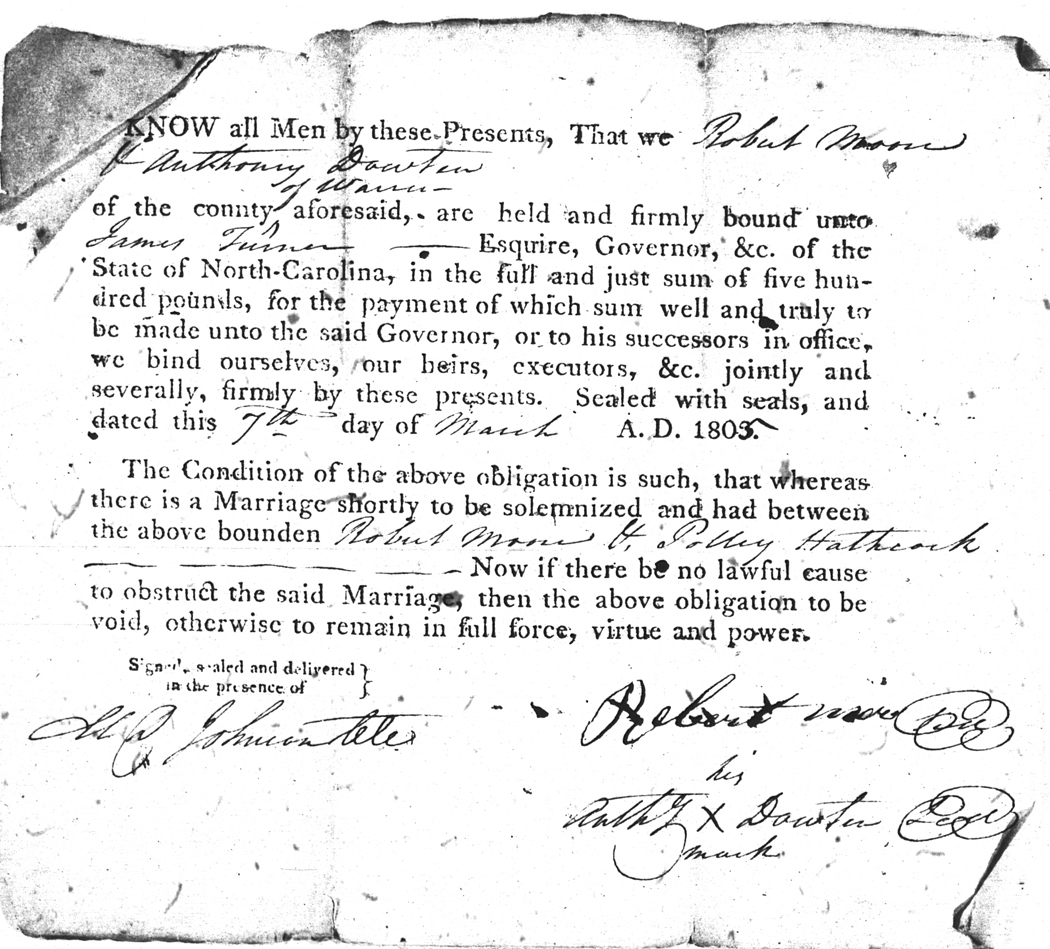 KNOW all Men by these Presents, That we Robert Moore
& Anthony Dowten
of Warren
of the county aforesaid, are held and firmly bound unto
James Turner Esquire, Governor, &c. of the
State of North-Carolina, in the full and just sum of five hun-
dred pounds, for the payment of which sum well and truly to
be made unto the said Governor, or to his successors in office,
we bind ourselves, our heirs, executors, &c. jointly and
severally, firmly by these presents. Sealed with seals, and
dated this 7th day of March A. D. 1805.
The Condition of the above obligation is such, that whereas
there is a Marriage shortly to be solemnized and had between
the above bounden Robert Moore & Polley Hathcock
Now if there be no lawful cause
to obstruct the said Marriage, then the above obligation to be
void, otherwise to remain in full force, virtue and power.
Signed, sealed and delivered }
in the presence of }
M Johnson
Robert more Seal
his
Anthy X Dowten Seal
mark